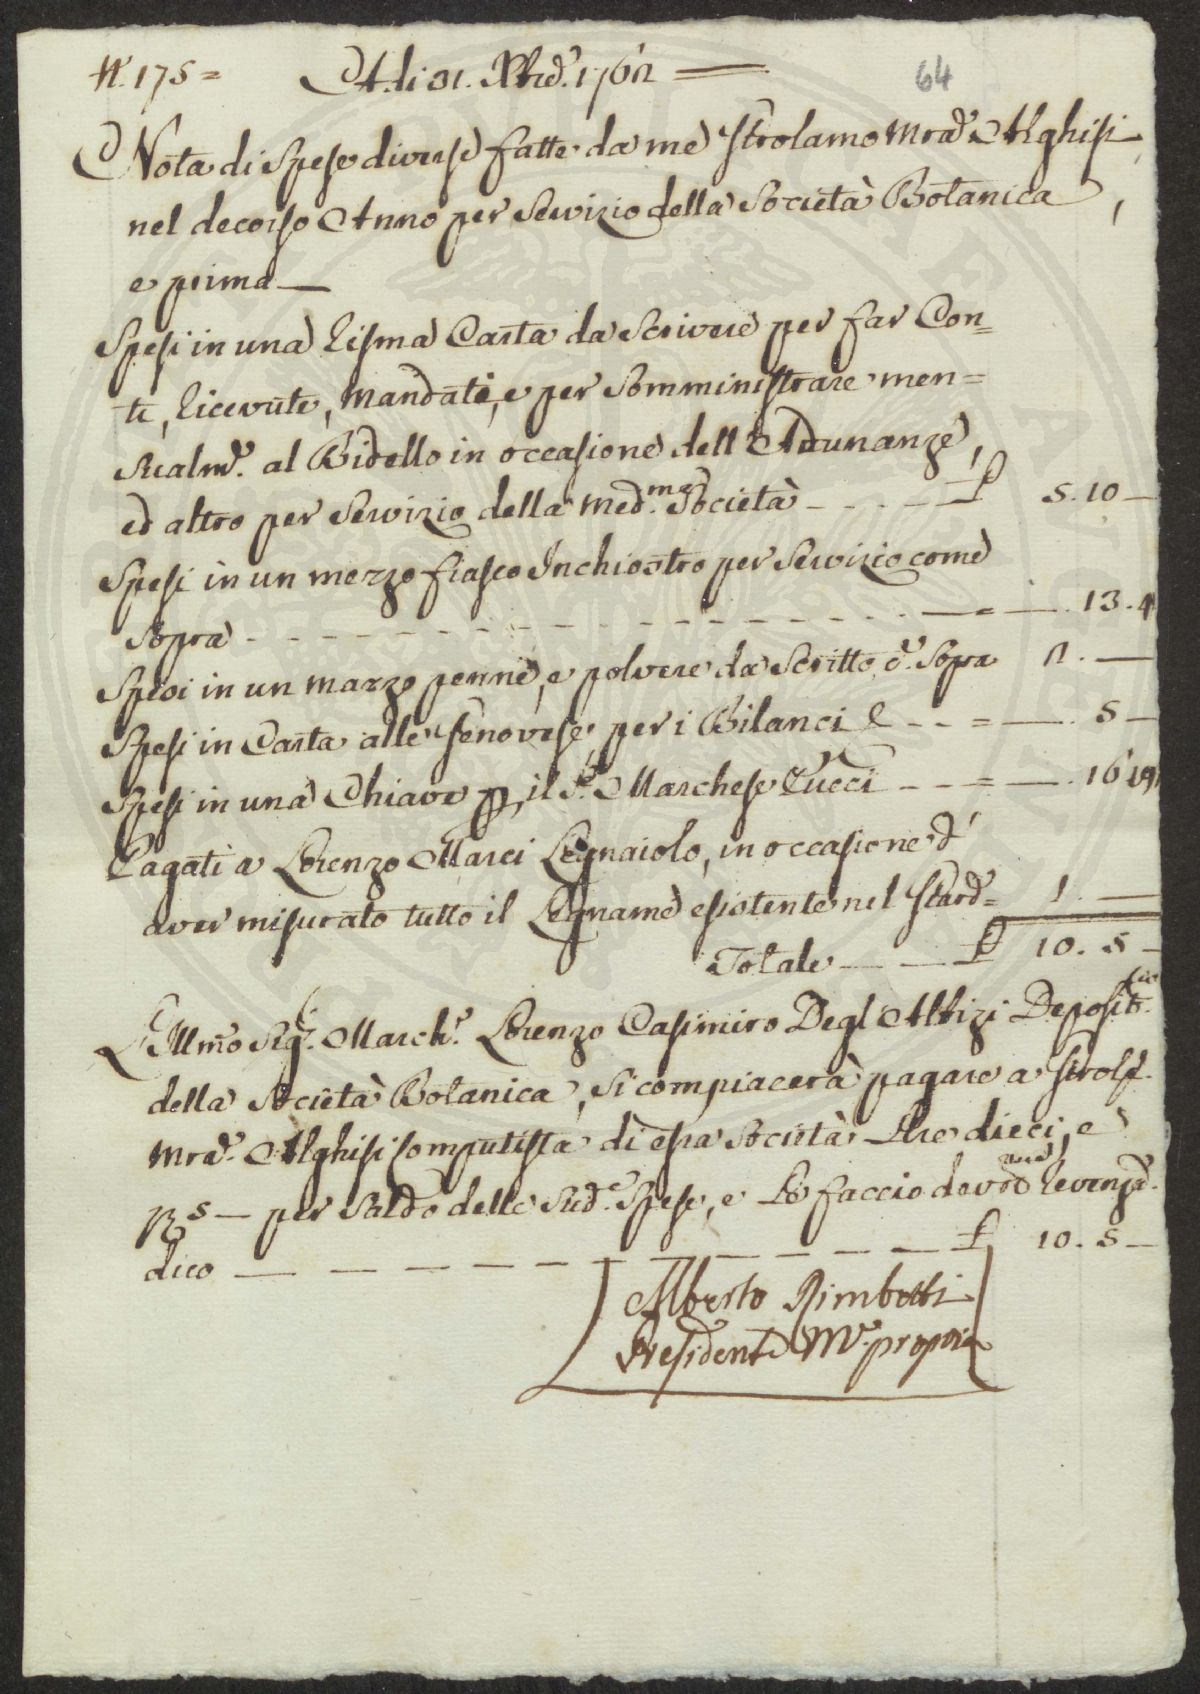 N. 175 =
A di 31. Xbre. 1762
64
Nota di Spese diverse fatte da me Girolamo Mra. Alghisi
nel decorso Anno per Servizio della Società Botanica,
e prima —
Spesi in una Risma Carta da Scrivere per far Con=
ti, Ricevute, Mandati, e per Somministrare men=
sualme. al Bidello in occasione dell'Adunanze,
ed altro per Servizio della Medma. Società - - - - - £ 5. 10 —
Spesi in un mezzo fiasco Inchiostro per Servizio come
Sopra - - - - - - - - - - - - = — . 13. 4
Spesi in un mazzo penne, e polvere da Scritto, e. Sopra 2. —
Spesi in Carta alle Genovese per i Bilanci - - = — . 5 —
Spesi in una Chiave p il Sr. Marchese Tucci - - = — . 16
Pagati a Lorenzo Marci Legnaiolo, in occasione d'
aver misurato tutto il Legname esistente nel Giard= 1. —
Totale — — £ 10. 5 —
L'Illmo Sigr. March.e Lorenzo Casimiro Degl'Albizi Deposit.rio
della Società Botanica, Si compiacerà pagare a Girol.
Mra. Alghisi Computista di essa Società Lire dieci, e
5 — per Saldo delle Sude. Spese, e Le faccio
dico — — — — — — — — — £ 10. 5 —
Alberto Rimbotti
Presidente Mo. propria